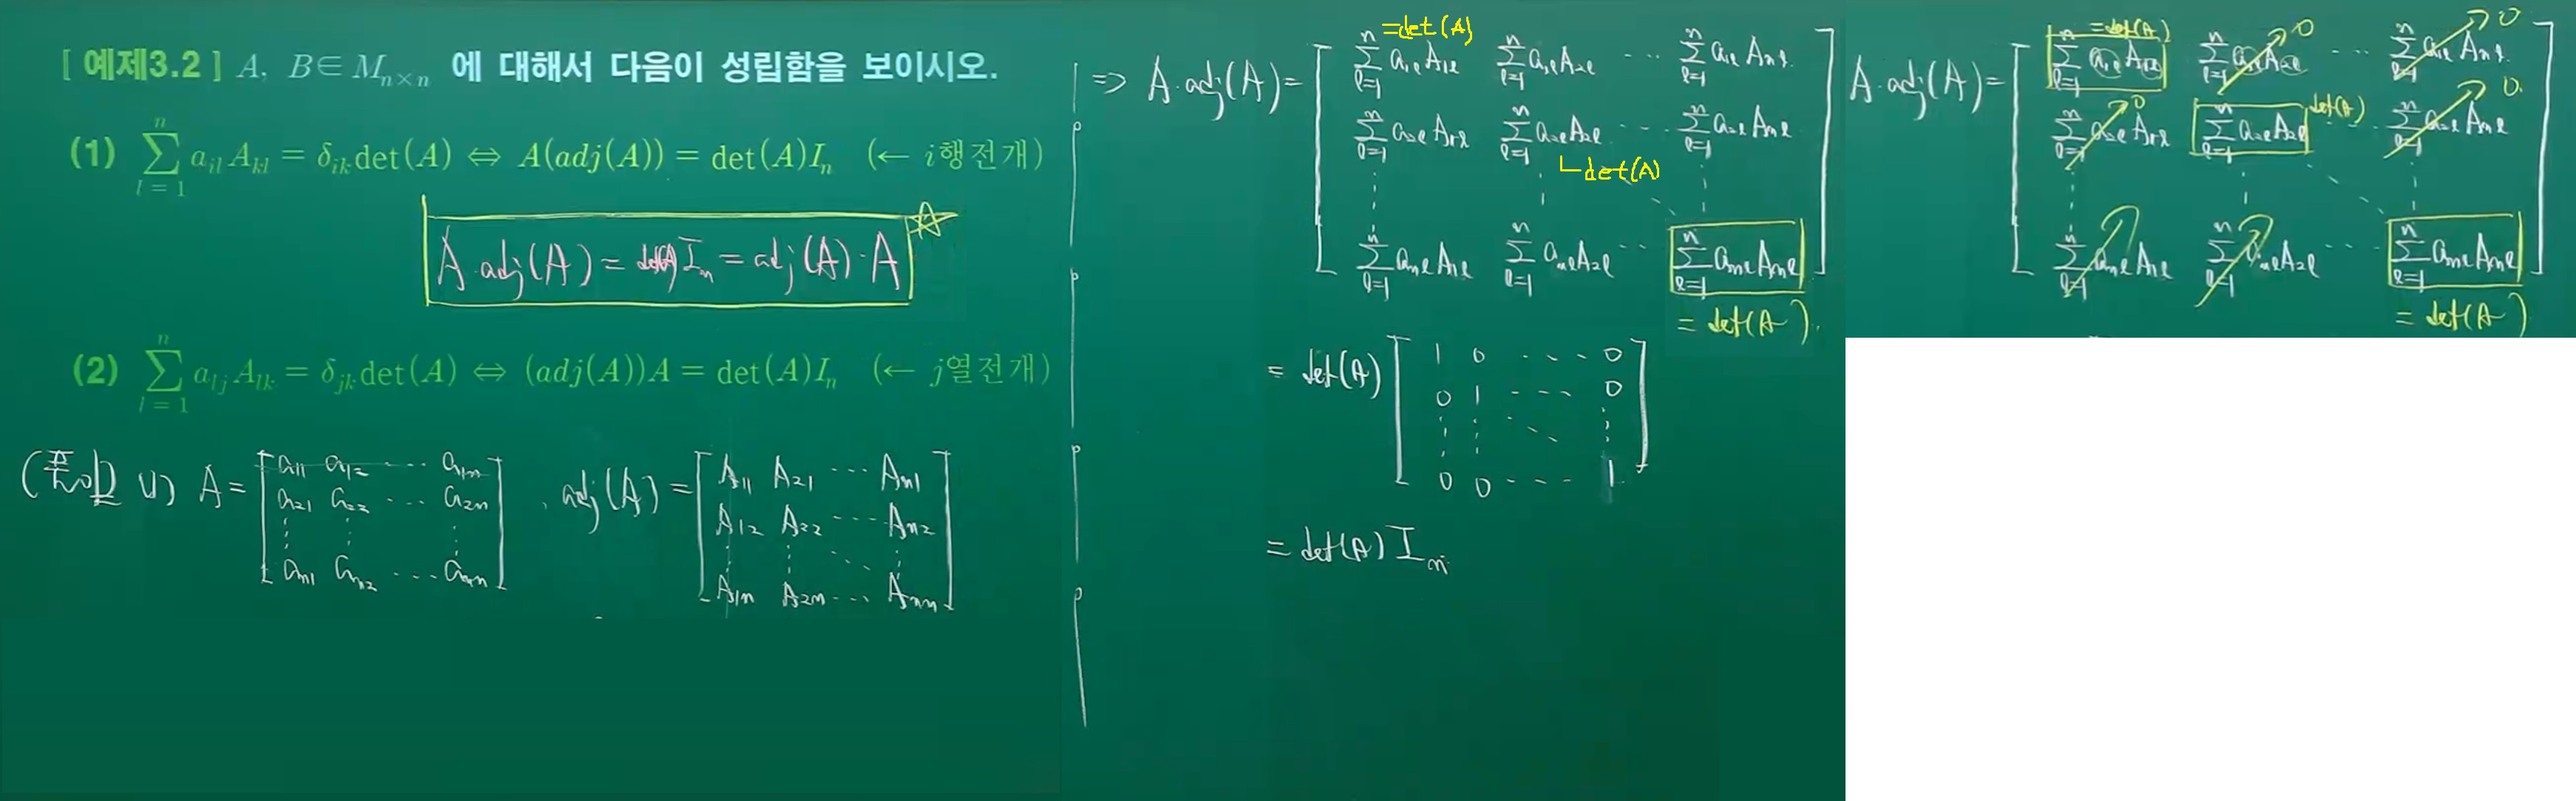 [ 예제3.2 ] A, B∈M_{n×n} 에 대해서 다음이 성립함을 보이시오.
(1) \sum_{l=1}^{n} a_{il}A_{kl} = δ_{ik}det(A) ⇔ A(adj(A)) = det(A)I_n (← i행전개)
A·adj(A) = det(A)I_n = adj(A)·A ☆
(2) \sum_{l=1}^{n} a_{lj}A_{lk} = δ_{jk}det(A) ⇔ (adj(A))A = det(A)I_n (← j열전개)
(풀이) (1) A = [ a_{11} a_{12} ⋯ a_{1n}
a_{21} a_{22} ⋯ a_{2n}
⋮ ⋮ ⋮
a_{n1} a_{n2} ⋯ a_{nn} ] , adj(A) = [ A_{11} A_{21} ⋯ A_{n1}
A_{12} A_{22} ⋯ A_{n2}
⋮ ⋮ ⋱ ⋮
A_{1n} A_{2n} ⋯ A_{nn} ]
=det(A)
⇒ A·adj(A) = [ \sum_{l=1}^{n} a_{1l}A_{1l} \sum_{l=1}^{n} a_{1l}A_{2l} ⋯ \sum_{l=1}^{n} a_{1l}A_{nl}
\sum_{l=1}^{n} a_{2l}A_{1l} \sum_{l=1}^{n} a_{2l}A_{2l} ⋯ \sum_{l=1}^{n} a_{2l}A_{nl}
det(A)
⋮ ⋮ ⋱ ⋮
\sum_{l=1}^{n} a_{nl}A_{1l} \sum_{l=1}^{n} a_{nl}A_{2l} ⋯ \sum_{l=1}^{n} a_{nl}A_{nl} ]
= det(A).
= det(A) [ 1 0 ⋯ 0
0 1 ⋯ 0
⋮ ⋮ ⋱ ⋮
0 0 ⋯ 1 ]
= det(A) I_n
=det(A) 0 0
A·adj(A) = [ \sum_{l=1}^{n} a_{1l}A_{1l} \sum_{l=1}^{n} a_{1l}A_{2l} ⋯ \sum_{l=1}^{n} a_{1l}A_{nl}
0 det(A) 0.
\sum_{l=1}^{n} a_{2l}A_{1l} \sum_{l=1}^{n} a_{2l}A_{2l} ⋯ \sum_{l=1}^{n} a_{2l}A_{nl}
⋮ ⋮ ⋱ ⋮
\sum_{l=1}^{n} a_{nl}A_{1l} \sum_{l=1}^{n} a_{nl}A_{2l} ⋯ \sum_{l=1}^{n} a_{nl}A_{nl} ]
= det(A)